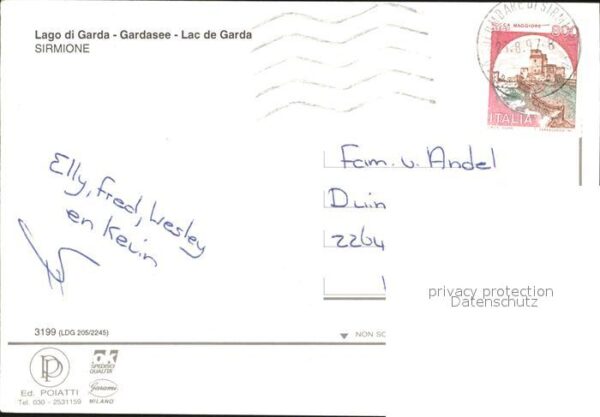 Lago di Garda - Gardasee - Lac de Garda
SIRMIONE
ROCCA MAGGIORE
ITALIA
Elly, Fred, Wesley
en Kevin
Fam. v. Andel
Duin
2264
privacy protection
Datenschutz
3199 (LDG 205/2245)
NON SC
Ed. POIATTI
Tel. 030 - 2531159
MILANO